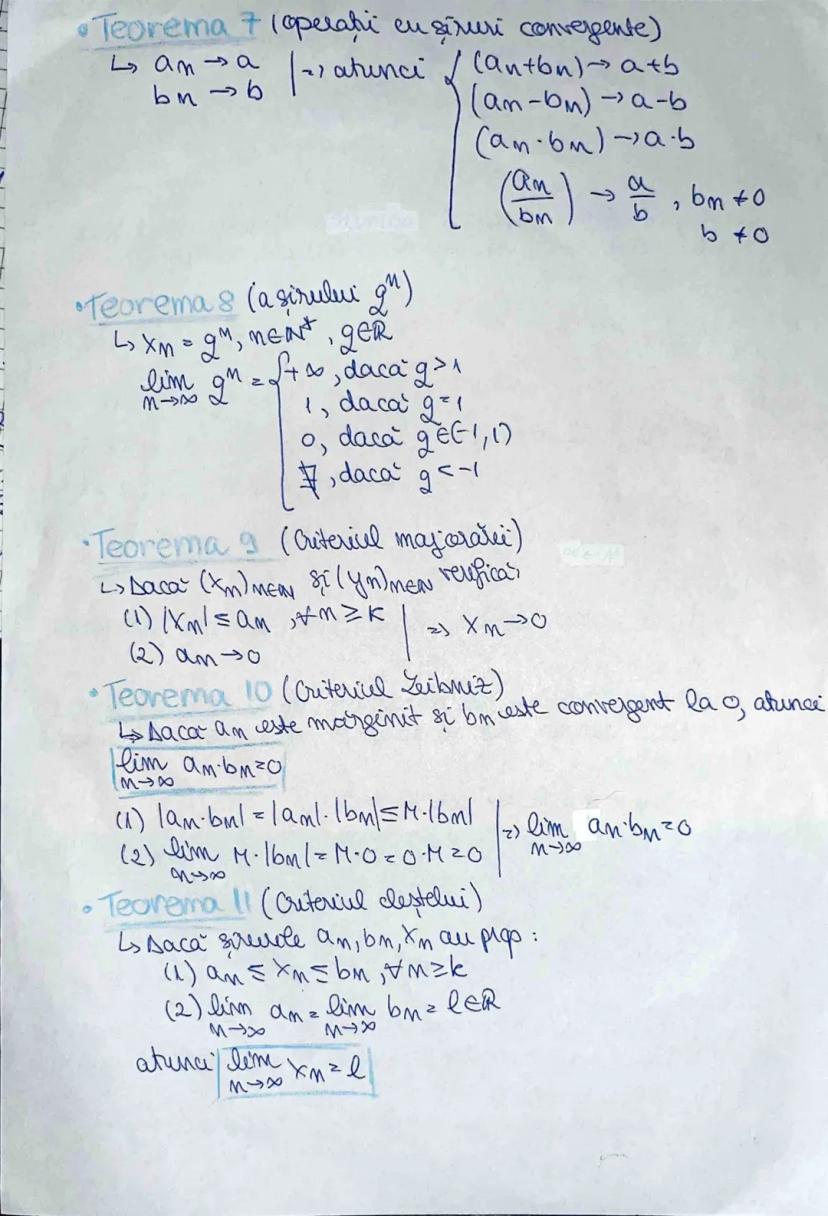 • Teorema 7 (operații cu șiruri convergente)
↳ an → a | => atunci { (an+bn) → a+b
bn → b
(an-bn) → a-b
(an·bn) → a·b
(an/bn) → a/b , bn ≠0
b ≠0
• Teorema 8 (a șirului q^n)
↳ xn = q^n, n∈N*, q∈R
lim n→∞ q^n = { +∞, dacă q>1
1, dacă q=1
0, dacă q∈(-1,1)
∄, dacă q<-1
• Teorema 9 (Criteriul majorării)
↳ Dacă (xn)n∈N și (yn)n∈N verifică:
(1) |xn| ≤ an, ∀n≥k | => xn→0
(2) an→0
• Teorema 10 (Criteriul Leibniz)
↳ Dacă an este mărginit și bn este convergent la 0, atunci
lim n→∞ an·bn=0
(1) |an·bn| = |an|·|bn| ≤ M·|bn| | => lim n→∞ an·bn=0
(2) lim n→∞ M·|bn| = M·0 = 0·M = 0
• Teorema 11 (Criteriul cleștelui)
↳ Dacă șirurile an, bn, xn au prop :
(1) an ≤ xn ≤ bn, ∀n≥k
(2) lim n→∞ an = lim n→∞ bn = l∈R
atunci lim n→∞ xn = l